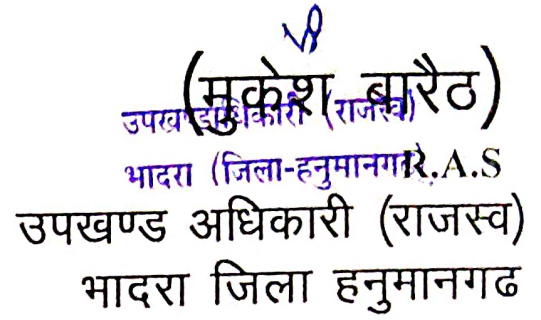 (मुकेश बारैठ)
उपखण्डाधिकारी (राजस्व)
भादरा (जिला-हनुमानगढ)
R.A.S
उपखण्ड अधिकारी (राजस्व)
भादरा जिला हनुमानगढ